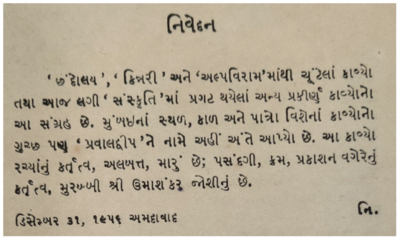 નિવેદન
‘છંદોલય’, ‘કિન્નરી’ અને ‘અલ્પવિરામ’માંથી ચૂંટેલાં કાવ્યો
તથા આજ લગી ‘સંસ્કૃતિ’માં પ્રગટ થયેલાં અન્ય પ્રકીર્ણ કાવ્યોનો
આ સંગ્રહ છે. મુંબઈનાં સ્થળ, કાળ અને પાત્રો વિશેનાં કાવ્યોનો
ગુચ્છ પણ ‘પ્રવાલદ્વીપ’ને નામે અહીં અંતે આપ્યો છે. આ કાવ્યો
રચ્યાંનું કર્તૃત્વ, અલબત્ત, મારું છે; પસંદગી, ક્રમ, પ્રકાશન વગેરેનું
કર્તૃત્વ, મુરબ્બી શ્રી ઉમાશંકર જોશીનું છે.
ડિસેમ્બર ૩૧, ૧૯૫૬ અમદાવાદ નિ.